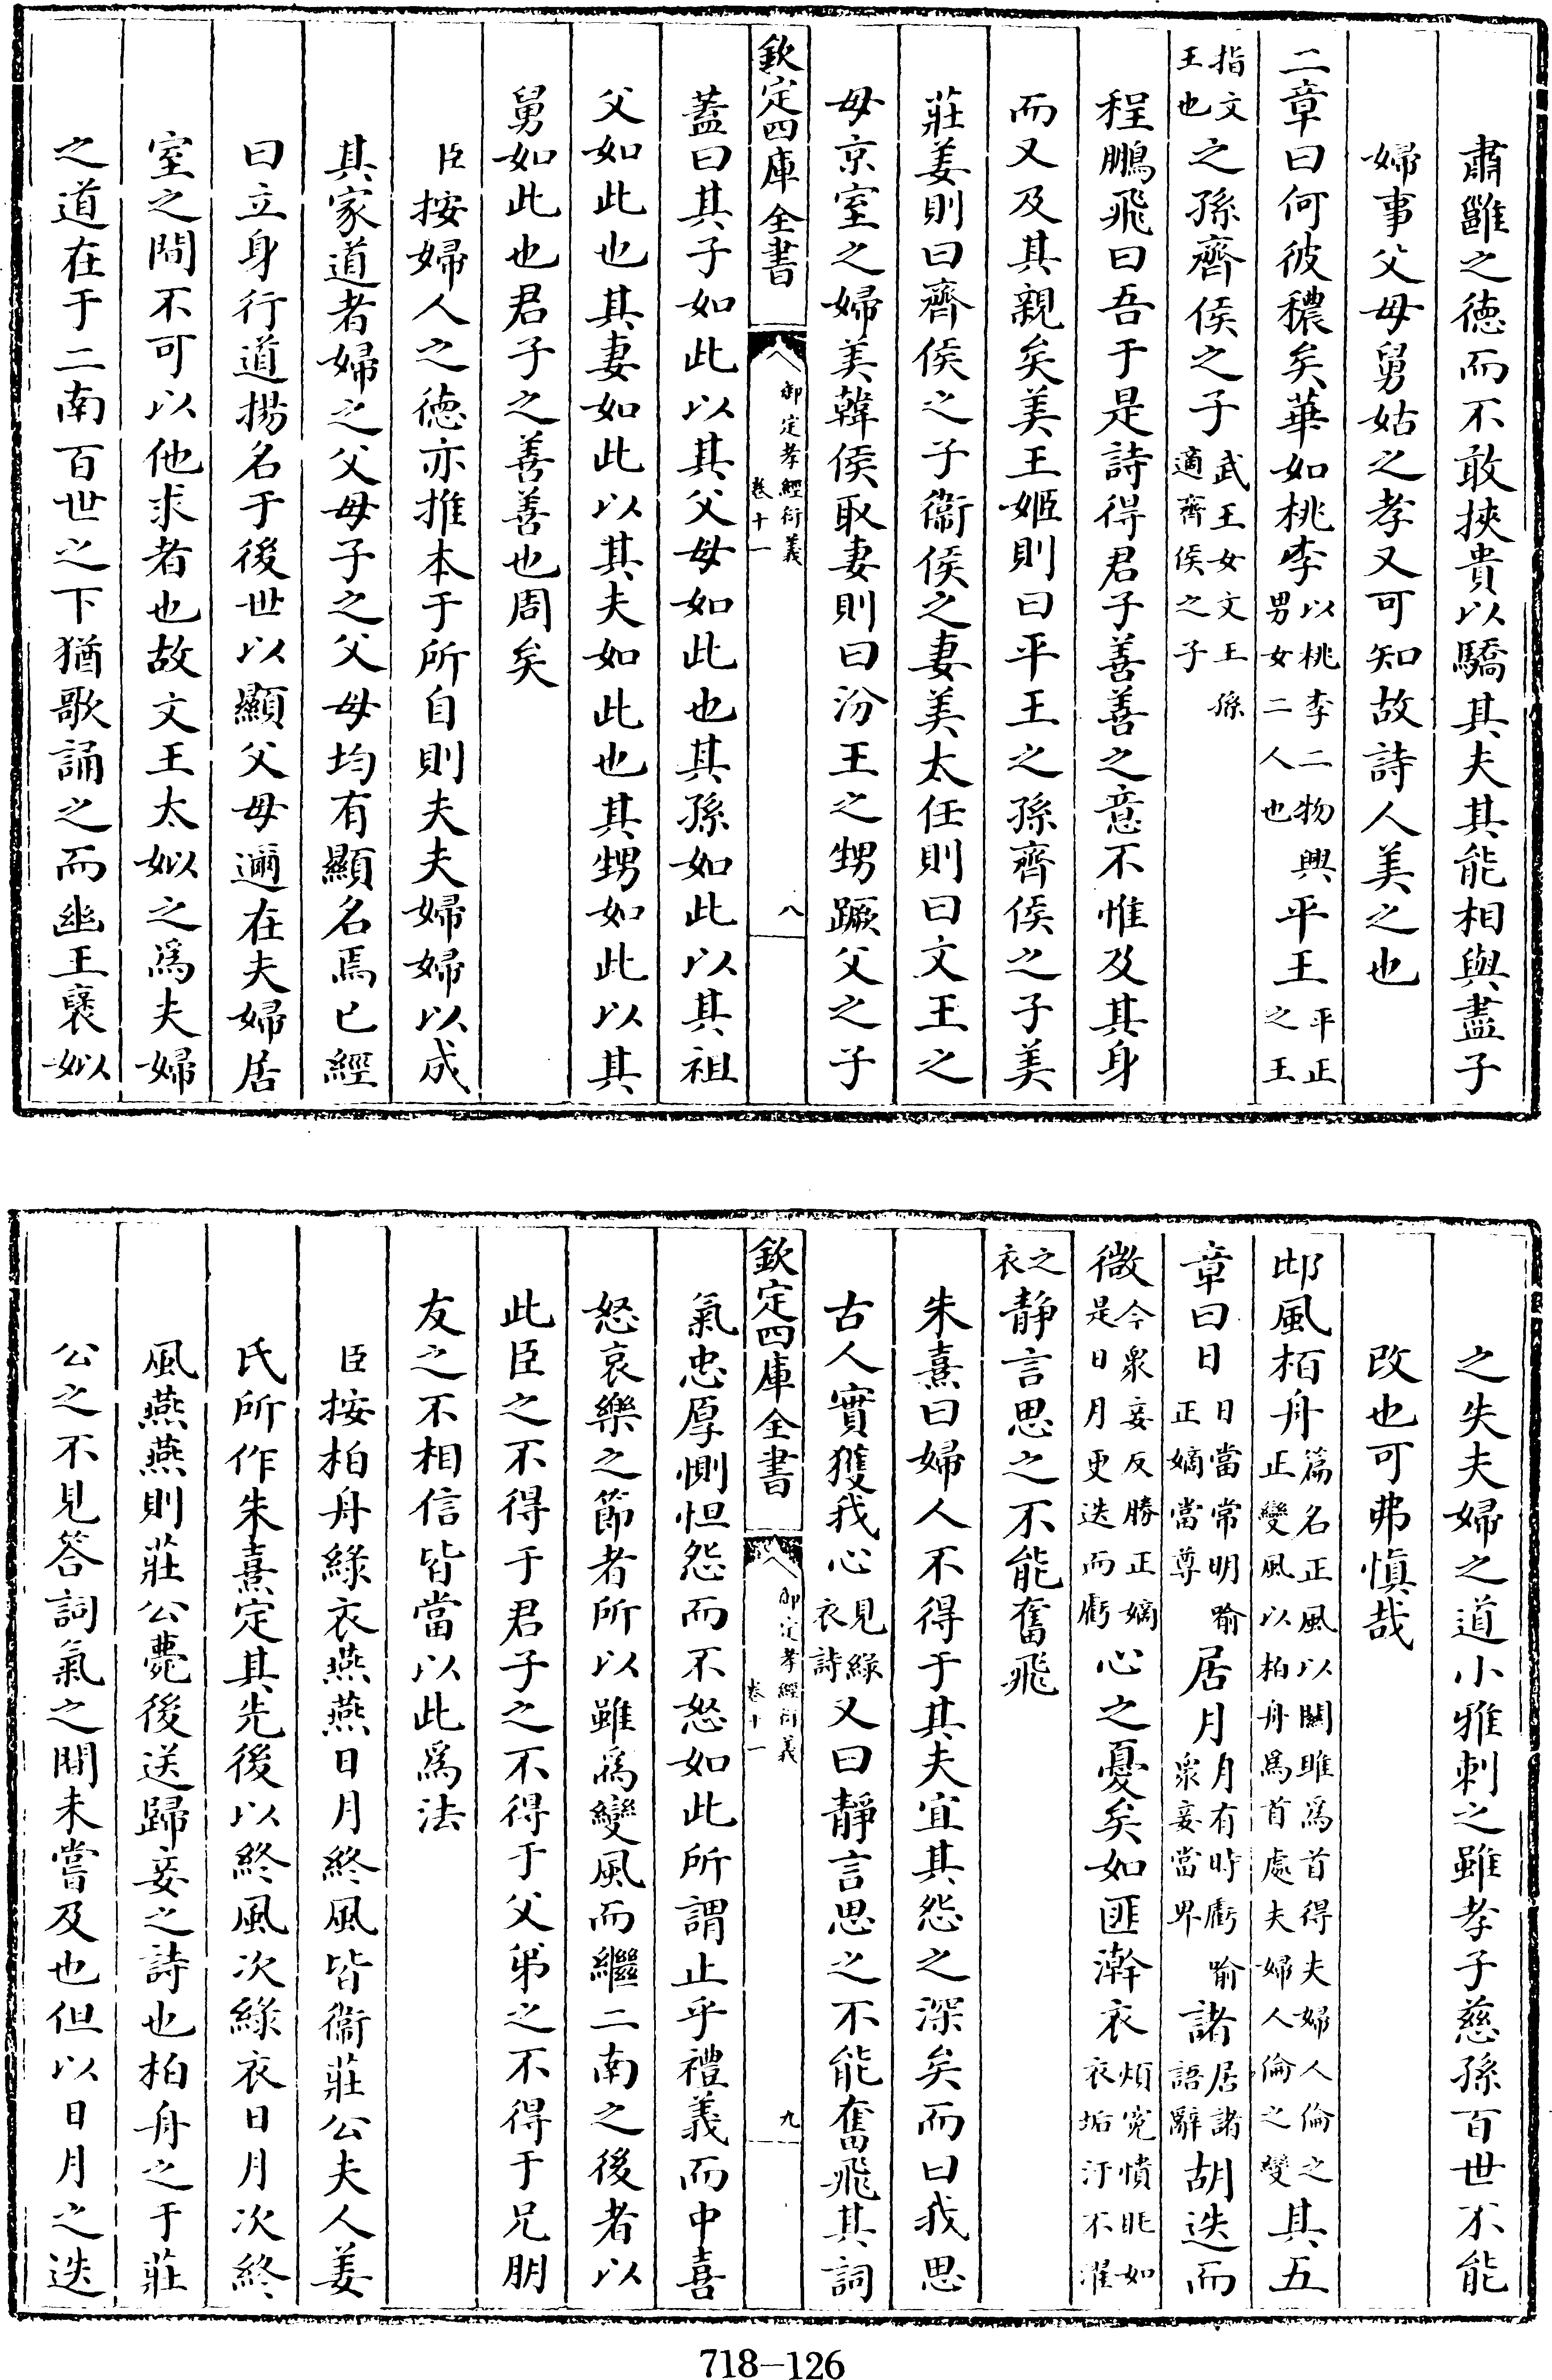 肅雝之德而不敢挾貴以驕其夫其能相與盡子
婦事父母舅姑之孝又可知故詩人美之也
二章曰何彼穠矣華如桃李以桃李二物興男女二人也平王平正之王
指文王也之孫齊侯之子武王女文王孫適齊侯之子
程鵬飛曰吾于是詩得君子善善之意不惟及其身
而又及其親矣美王姬則曰平王之孫齊侯之子美
莊姜則曰齊侯之子衞侯之妻美太任則曰文王之
母京室之婦美韓侯取妻則曰汾王之甥蹶父之子
欽定四庫全書 御定孝經衍義 卷十一 八
蓋曰其子如此以其父母如此也其孫如此以其祖
父如此也其妻如此以其夫如此也其甥如此以其
舅如此也君子之善善也周矣
臣按婦人之德亦推本于所自則夫夫婦婦以成
其家道者婦之父母子之父母均有顯名焉已經
曰立身行道揚名于後世以顯父母邇在夫婦居
室之間不可以他求者也故文王太姒之爲夫婦
之道在于二南百世之下猶歌誦之而幽王褒姒
之失夫婦之道小雅刺之雖孝子慈孫百世不能
改也可弗慎哉
邶風柏舟篇名正風以關雎爲首得夫婦人倫之正變風以柏舟爲首處夫婦人倫之變其五
章曰日日當常明喻正嫡當尊居月月有時虧喻衆妾當卑諸居諸語辭胡迭而
微今衆妾反勝正嫡是日月更迭而虧心之憂矣如匪澣衣煩寃憒眊如衣垢汙不濯
之衣靜言思之不能奮飛
朱熹曰婦人不得于其夫宜其怨之深矣而曰我思
古人實獲我心見綠衣詩又曰靜言思之不能奮飛其詞
欽定四庫全書 御定孝經衍義 卷十一 九
氣忠厚惻怛怨而不怒如此所謂止乎禮義而中喜
怒哀樂之節者所以雖爲變風而繼二南之後者以
此臣之不得于君子之不得于父弟之不得于兄朋
友之不相信皆當以此爲法
臣按柏舟綠衣燕燕日月終風皆衞莊公夫人姜
氏所作朱熹定其先後以終風次綠衣日月次終
風燕燕則莊公薨後送歸妾之詩也柏舟之于莊
公之不見答詞氣之間未嘗及也但以日月之迭
718-126